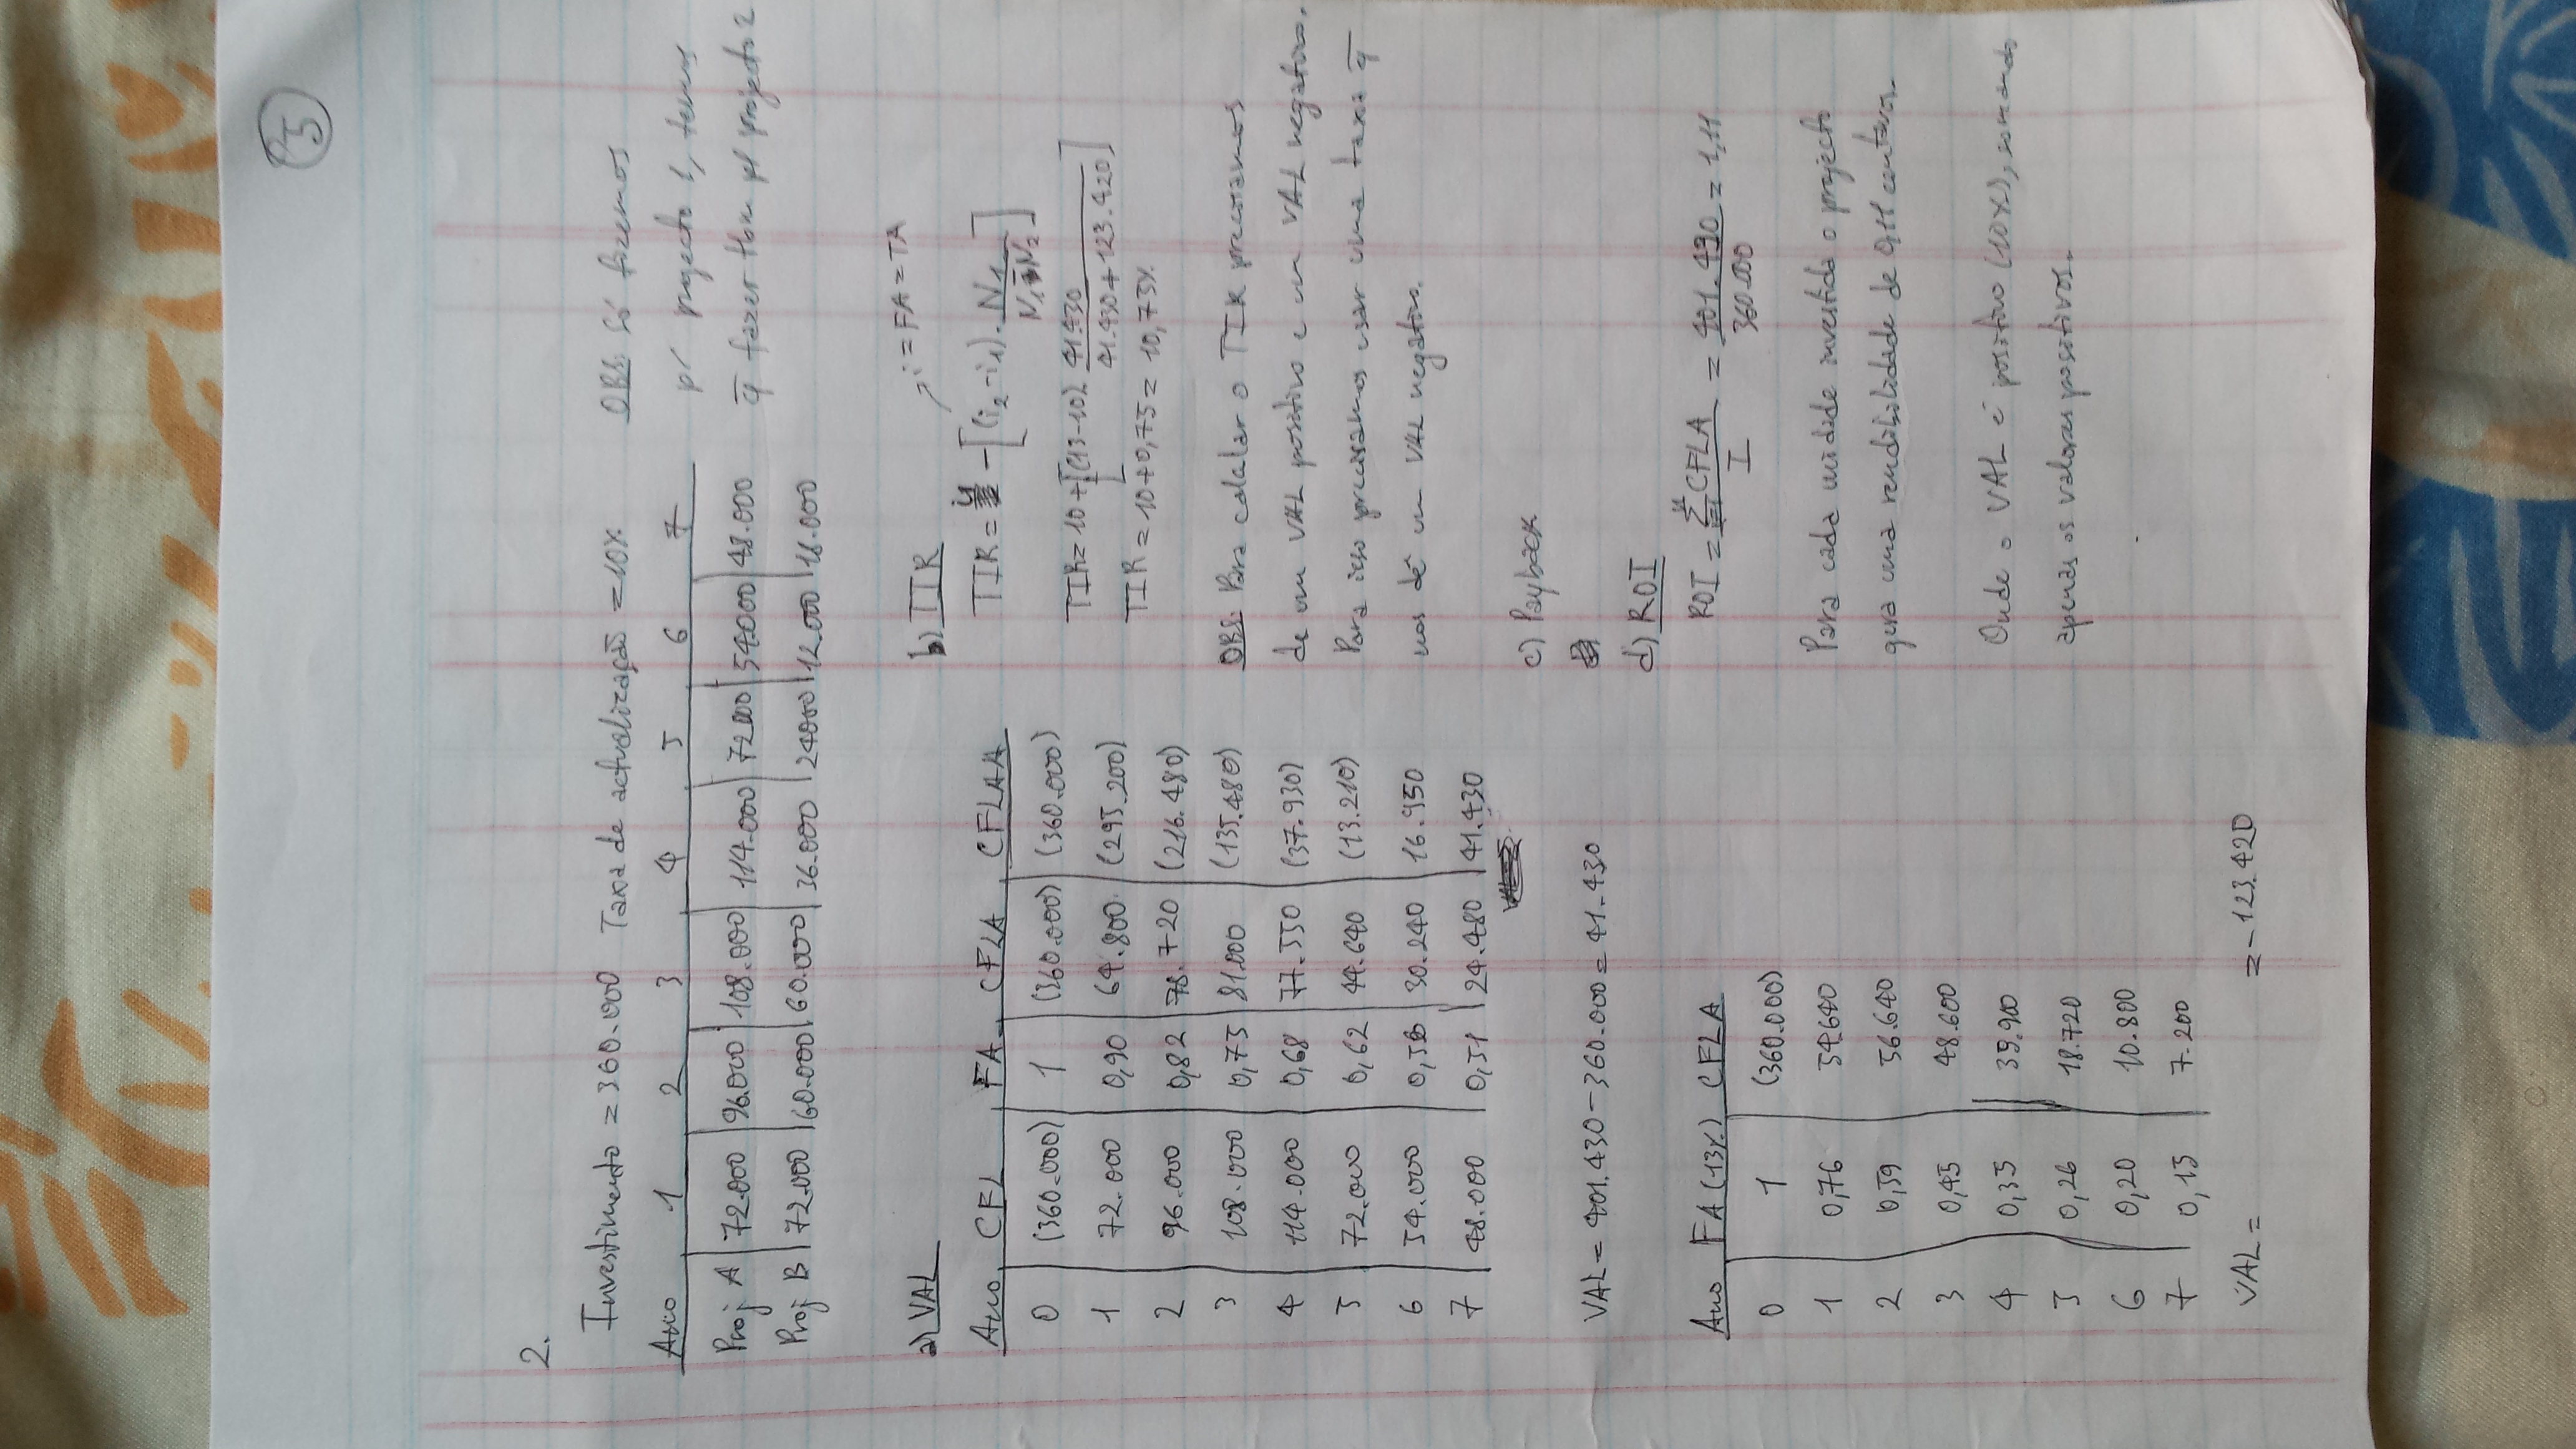 5
2.
Investimento = 360.000 Taxa de actualização = 10%
Ano 1 2 3 4 5 6 7
Proj A 72.000 96.000 108.000 114.000 72.000 54.000 48.000
Proj B 72.000 60.000 60.000 36.000 24000 12.000 18.000
OBS: Só fizemos
p/ projecto 1, temos
q̄ fazer tbm p/ projecto 2
a) VAL
Ano CFL FA CFLA CFLAA
0 (360.000) 1 (360.000) (360.000)
1 72.000 0,90 64.800 (295.200)
2 96.000 0,82 78.720 (216.480)
3 108.000 0,75 81.000 (135.480)
4 114.000 0,68 77.550 (37.930)
5 72.000 0,62 44.640 (13.210)
6 54.000 0,56 30.240 16.950
7 48.000 0,51 24.480 41.430
VAL = 401.430 - 360.000 = 41.430
Ano FA (13%) CFLA
0 1 (360.000)
1 0,76 54.640
2 0,59 56.640
3 0,45 48.600
4 0,35 39.900
5 0,26 18.720
6 0,20 10.800
7 0,15 7.200
VAL = = -123.420
b) TIR
i = FA = TA
TIR = i1 - [(i2 - i1) . N1 / N1 - N2]
TIR = 10 + [(13-10) 41.430 / 41.430 + 123.420]
TIR = 10 + 0,75 = 10,75%
OBS: Para calcular o TIR precisamos
de um VAL positivo e um VAL negativo.
Para isso precisamos usar uma taxa q̄
nos dê um VAL negativo.
c) Payback
d) ROI
ROI = Σ CFLA / I = 401.430 / 360.000 = 1,11
Para cada unidade investida o projecto
gera uma rendibilidade de 0,11 centavos.
Onde o VAL é positivo (10%), somando
apenas os valores positivos.